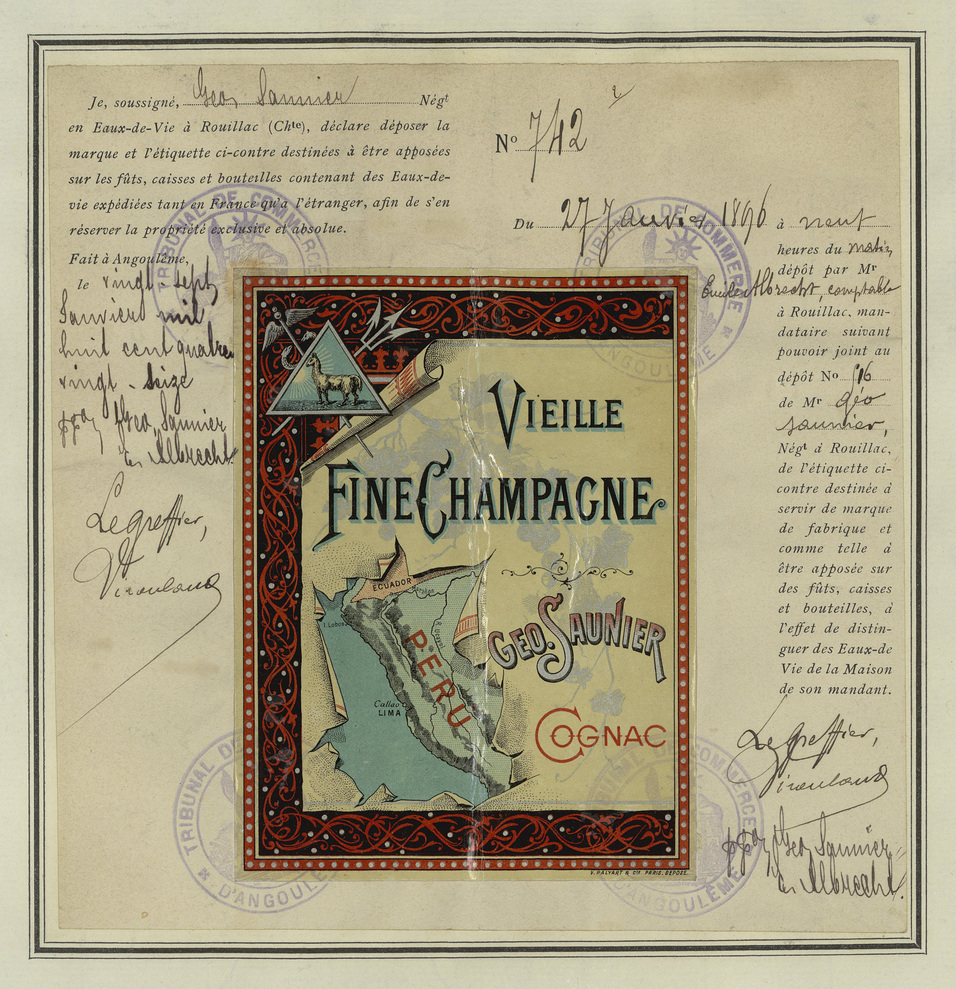 Je, soussigné, Geo Saunier Négt
en Eaux-de-Vie à Rouillac (Chte), déclare déposer la
marque et l'étiquette ci-contre destinées à être apposées
sur les fûts, caisses et bouteilles contenant des Eaux-de-
vie expédiées tant en France qu'a l'étranger, afin de s'en
réserver la propriété exclusive et absolue.
Fait à Angoulême,
le vingt-sept
Janvier mil
huit cent quatre
vingt-seize
ppon Geo, Saunier
Em Albrecht
Le greffier,
Virouland
No 742
Du 27 Janvier 1896 à neuf
heures du matin,
dépôt par Mr
Emile Albrecht, comptable
à Rouillac, man-
dataire suivant
pouvoir joint au
dépôt No 516
de Mr Géo
Saunier,
Négt à Rouillac,
de l'étiquette ci-
contre destinée à
servir de marque
de fabrique et
comme telle à
être apposée sur
des fûts, caisses
et bouteilles, à
l'effet de distin-
guer des Eaux-de
Vie de la Maison
de son mandant.
Le greffier,
Virouland
ppon Geo, Saunier
Em Albrecht
VIEILLE
FINE CHAMPAGNE
GEO. SAUNIER
COGNAC
ECUADOR
I. Lobos
PERU
Callao
LIMA
V. PALYART & Cie PARIS. DEPOSÉ.
TRIBUNAL DE COMMERCE
TRIBUNAL DE COMMERCE
TRIBUNAL DE COMMERCE
D'ANGOULÊME
TRIBUNAL DE COMMERCE
D'ANGOULÊME